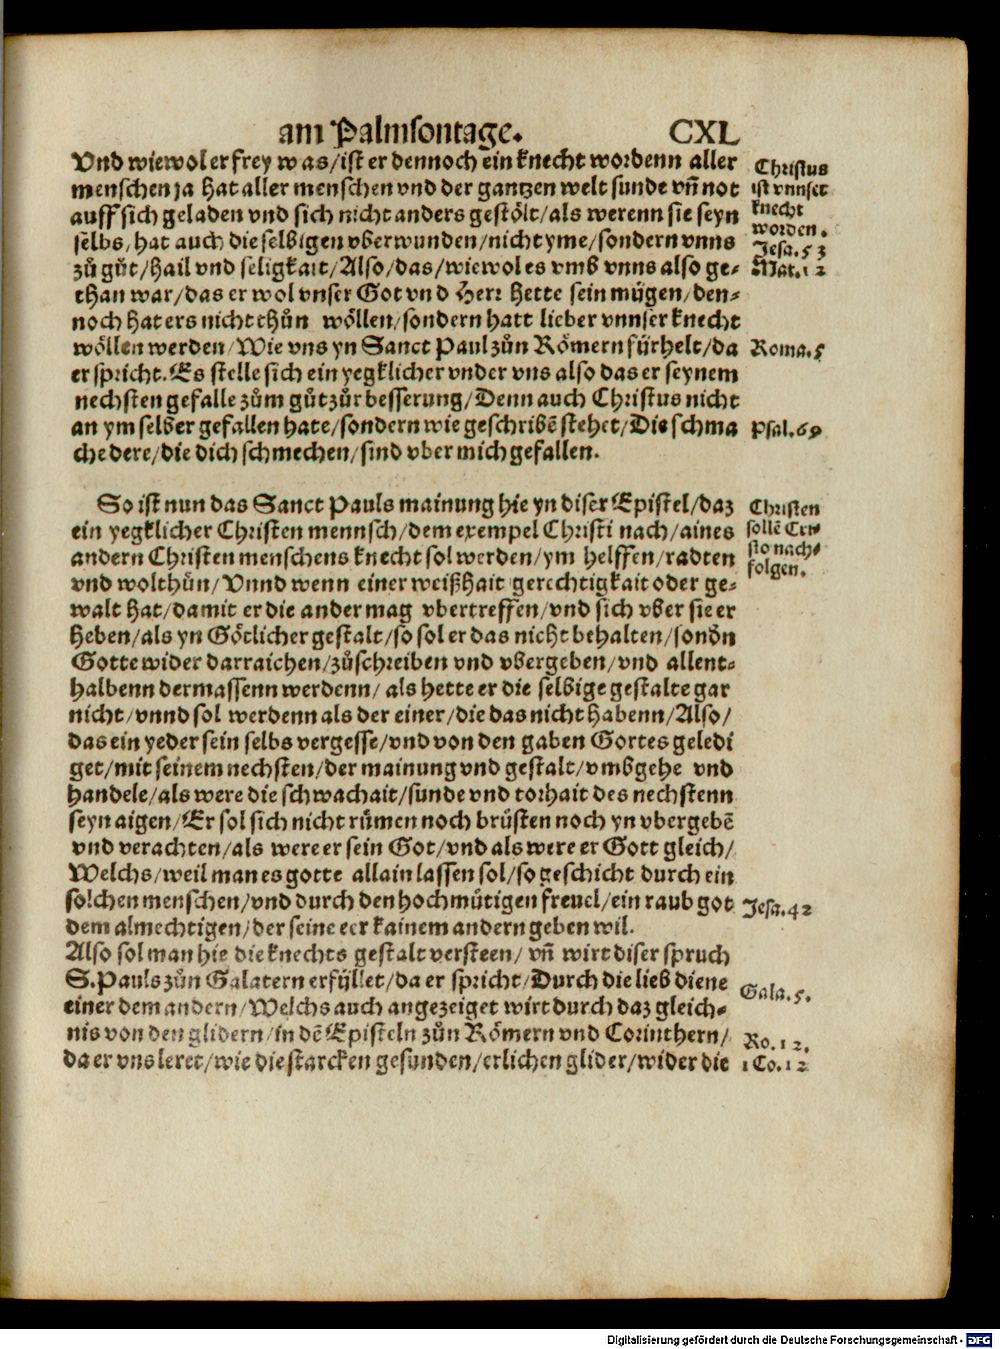 am Palmsontage. CXL
Vnd wiewol er frey was/ist er dennoch ein knecht wordenn aller
menschen ja hat aller menschen vnd der gantzen welt sunde vñ not
auff sich geladen vnd sich nicht anders gestölt/als werenn sie seyn
selbs/hat auch die selbigen vberwunden/nicht yme/sondern vnns
zů gůt/hail vnd seligkait/Also/das/wiewol es vmb vnns also ge-
than war/das er wol vnser Got vnd Herr hette sein mügen/den-
noch hat ers nicht thůn wöllen/sondern hatt lieber vnnser knecht
wöllen werden/Wie vns yn Sanct Paul zůn Römern fürhelt/da
er spricht. Es stelle sich ein yegklicher vnder vns also das er seynem
nechsten gefalle zům gůt zůr besserung/Denn auch Christus nicht
an ym selber gefallen hate/sondern wie geschribē stehet/Die schma
che dere/die dich schmechen/sind vber mich gefallen.
Christus
ist vnnser
knecht
worden.
Jesa.53
Mat.12
Roma.5
Psal.69
So ist nun das Sanct Pauls mainung hie yn diser Epistel/daz
ein yegklicher Christen mennsch/dem exempel Christi nach/aines
andern Christen menschens knecht sol werden/ym helffen/radten
vnd wolthůn/Vnnd wenn einer weißhait gerechtigkait oder ge-
walt hat/damit er die ander mag vbertreffen/vnd sich vber sie er
heben/als yn Götlicher gestalt/so sol er das nicht behalten/sondn
Gotte wider darraichen/zůschreiben vnd vbergeben/vnd allent-
halbenn dermassenn werdenn/als hette er die selbige gestalte gar
nicht/vnnd sol werdenn als der einer/die das nicht habenn/Also/
das ein yeder sein selbs vergesse/vnd von den gaben Gottes geledi
get/mit seinem nechsten/der mainung vnd gestalt/vmbgehe vnd
handele/als were die schwachait/sunde vnd torhait des nechstenn
seyn aigen/Er sol sich nicht růmen noch brüsten noch yn vbergebē
vnd verachten/als were er sein Got/vnd als were er Gott gleich/
Welchs/weil man es gotte allain lassen sol/so geschicht durch ein
solchen menschen/vnd durch den hochmütigen freuel/ein raub got
dem almechtigen/der seine eer kainem andern geben wil.
Also sol man hie die knechts gestalt versteen/vñ wirt diser spruch
S.Pauls zůn Galatern erfyllet/da er spricht/Durch die lieb diene
einer dem andern/Welchs auch angezeiget wirt durch daz gleich-
nis von den glidern/in dē Episteln zůn Römern vnd Corinthern/
da er vns leret/wie die starcken gesunden/erlichen glider/wider die
Christen
sollē Cri
sto nach-
folgen.
Jesa.42
Gala.5.
Ro.12.
1 Co.12
Digitalisierung gefördert durch die Deutsche Forschungsgemeinschaft - DFG